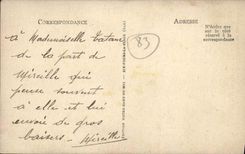 CORRESPONDANCE
ADRESSE
N'écrire que
sur le côté
réservé à la
correspondance
83
à Mademoiselle
de la part de
Mireille qui
pense souvent
à elle et lui
envoie de gros
baisers. Mireille